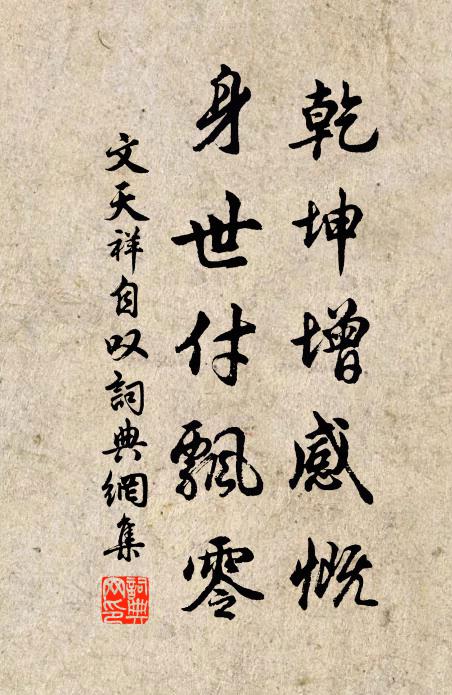 乾坤增感慨
身世付飄零
文天祥自叹詞典網集
詞典
网印